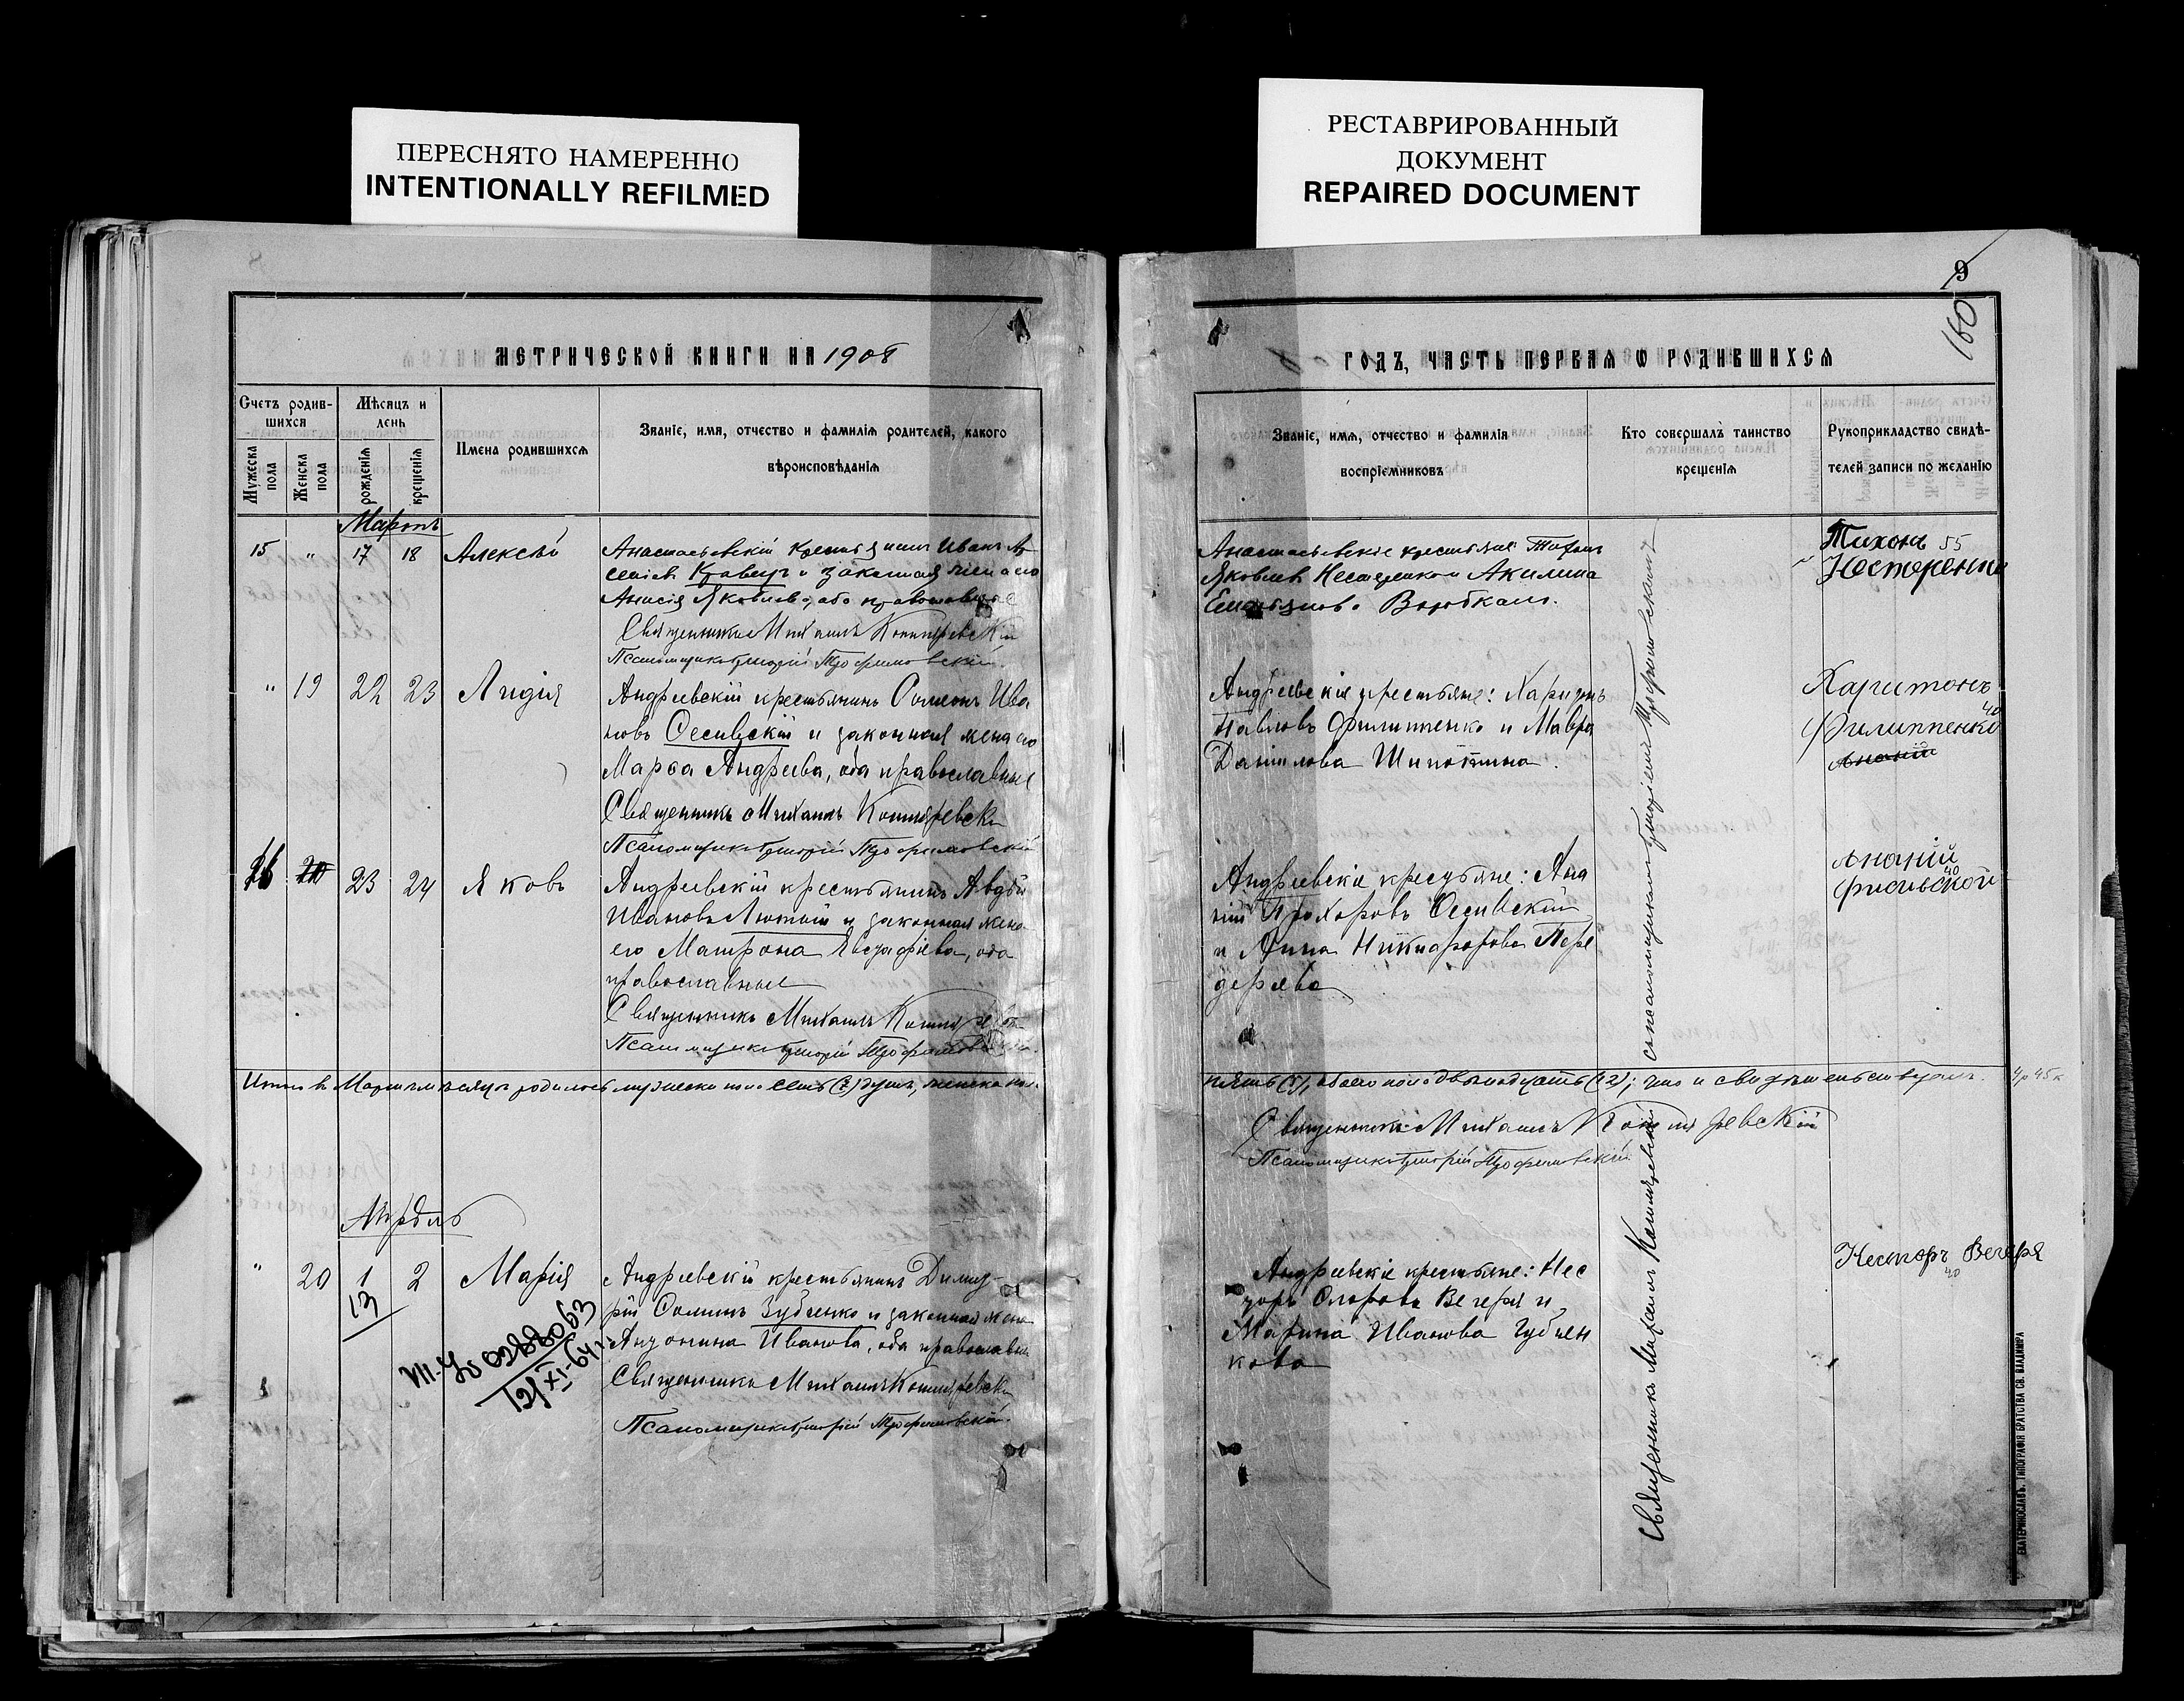 ПЕРЕСНЯТО НАМЕРЕННО
INTENTIONALLY REFILMED
РЕСТАВРИРОВАННЫЙ
ДОКУМЕНТ
REPAIRED DOCUMENT
МЕТРИЧЕСКОЙ КНИГИ НА 1908
Счетъ родив-
шихся
Мужеска пола
Женска пола
Мѣсяцъ и
день
рожденія
крещенія
Имена родившихся
Званіе, имя, отчество и фамилія родителей, какого
вѣроисповѣданія
Мартъ
15 " 17 18 Алексѣй
Анастасьевскій крестьянинъ Иванъ
Кравецъ и законная жена его
Анисія Яковлева, оба православные
Священникъ Михаилъ Котляревскій
Псаломщикъ Григорій Трофимовскій.
" 19 22 23 Лидія
Андреевскій крестьянинъ Симеонъ Ива
новъ Сесивскій и законная жена его
Марѳа Андреева, оба православные
Священникъ Михаилъ Котляревскій
Псаломщикъ Григорій Трофимовскій
16 20 23 24 Яковъ
Андреевскій крестьянинъ Авдѣй
Ивановъ Лютый и законная жена
его Матрона Евстафіева, оба
православные
Священникъ Михаилъ Котляревскій
Псаломщикъ Григорій Трофимовскій.
Итого въ Мартѣ мѣсяцѣ родилось мужеска пола семь (7) душъ, женска пола
Апрѣль
" 20 1 2 Марія
13
Андреевскій крестьянинъ Димит-
рій Симеоновъ Зубченко и законная жена
Антонина Иванова, оба православные
Священникъ Михаилъ Котляревскій
Псаломщикъ Григорій Трофимовскій.
9
160
ГОДЪ, ЧАСТЬ ПЕРВАЯ Ѡ РОДИВШИХСЯ
Званіе, имя, отчество и фамилія
воспріемниковъ
Кто совершалъ таинство
крещенія
Рукоприкладство свидѣ-
телей записи по желанію
Анастасьевскіе крестьяне: Тихонъ
Яковлевъ Нестеренко и Акилина
Емельянова
Тихонъ 55
Нестеренко
Андреевскіе крестьяне: Харитонъ
Павловъ Филиппенко и Мавра
Даніилова
Харитонъ
40
Филиппенко
Ананій
Андреевскіе крестьяне: Ана
ній Прохоровъ Сесивскій
и Анна Никифорова Пере
дерѣева
Ананій
40
пять (5), обоего пола двѣнадцать (12); что и свидѣтельствуемъ.
4р 45к
Священникъ Михаилъ Котляревскій
Псаломщикъ Григорій Трофимовскій.
Андреевскіе крестьяне: Нес
торъ Вечеря и
Марина Иванова Зубчен
кова
Несторъ Вечеря
40
Священникъ Михаилъ Котляревскій съ псаломщикомъ Григоріемъ Трофимовскимъ
ЕКАТЕРИНОСЛАВЪ. ТИПОГРАФІЯ БРАТСТВА СВ. ВЛАДИМІРА